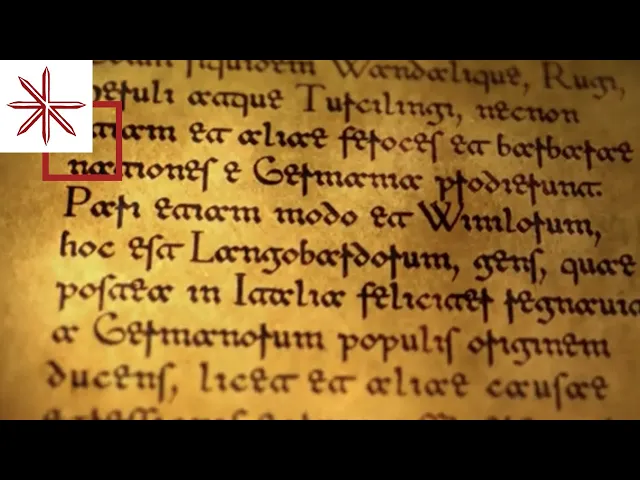 siquidem Wandalique, Rugi,
Heruli atque Turcilingi, necnon
etiam et aliae feroces et barbarae
nationes e Germania prodierunt.
Pari etiam modo et Winilorum,
hoc est Langobardorum, gens, quae
postea in Italia feliciter regnavi
a Germanorum populis originem
ducens, licet et aliae causae